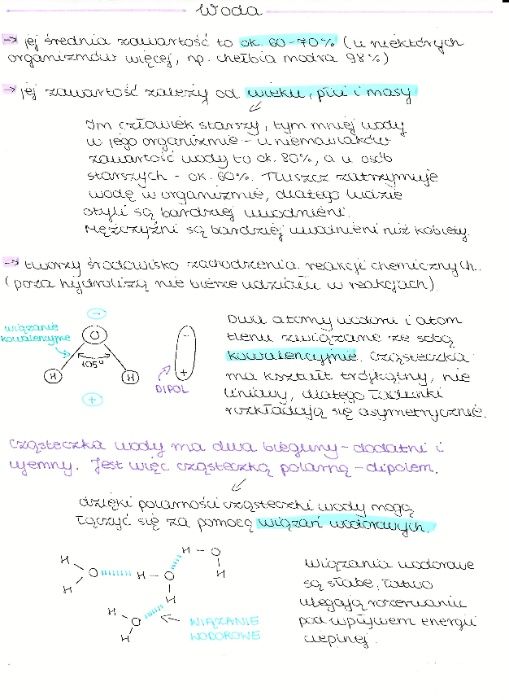 Woda
→ jej średnia zawartość to ok. 60-70% (u niektórych
organizmów więcej, np. chełbia modra 98%)
→ jej zawartość zależy od wieku, płci i masy
Im człowiek starszy, tym mniej wody
w jego organizmie - u niemowlaków
zawartość wody to ok. 80%, a u osób
starszych - ok. 60%. Tłuszcz zatrzymuje
wodę w organizmie, dlatego ludzie
otyli są bardziej uwodnieni.
Mężczyźni są bardziej uwodnieni niż kobiety
→ tworzy środowisko zachodzenia reakcji chemicznych.
(poza hydrolizą nie bierze udziału w reakcjach)
wiązanie
kowalencyjne
-
O
105°
H
H
+
-
+
DIPOL
Dwa atomy wodoru i atom
tlenu związane ze sobą
kowalencyjnie. Cząsteczka
ma kształt trójkątny, nie
liniowy, dlatego ładunki
rozkładają się asymetrycznie.
Cząsteczka wody ma dwa bieguny - dodatni i
ujemny. Jest więc cząsteczką polarną - dipolem.
dzięki polarności cząsteczki wody mogą
łączyć się za pomocą wiązań wodorowych.
H
O
H
H - O
H
H - O
H
H
O
H
WIĄZANIE
WODOROWE
Wiązania wodorowe
są słabe, łatwo
ulegają rozerwaniu
pod wpływem energii
cieplnej.